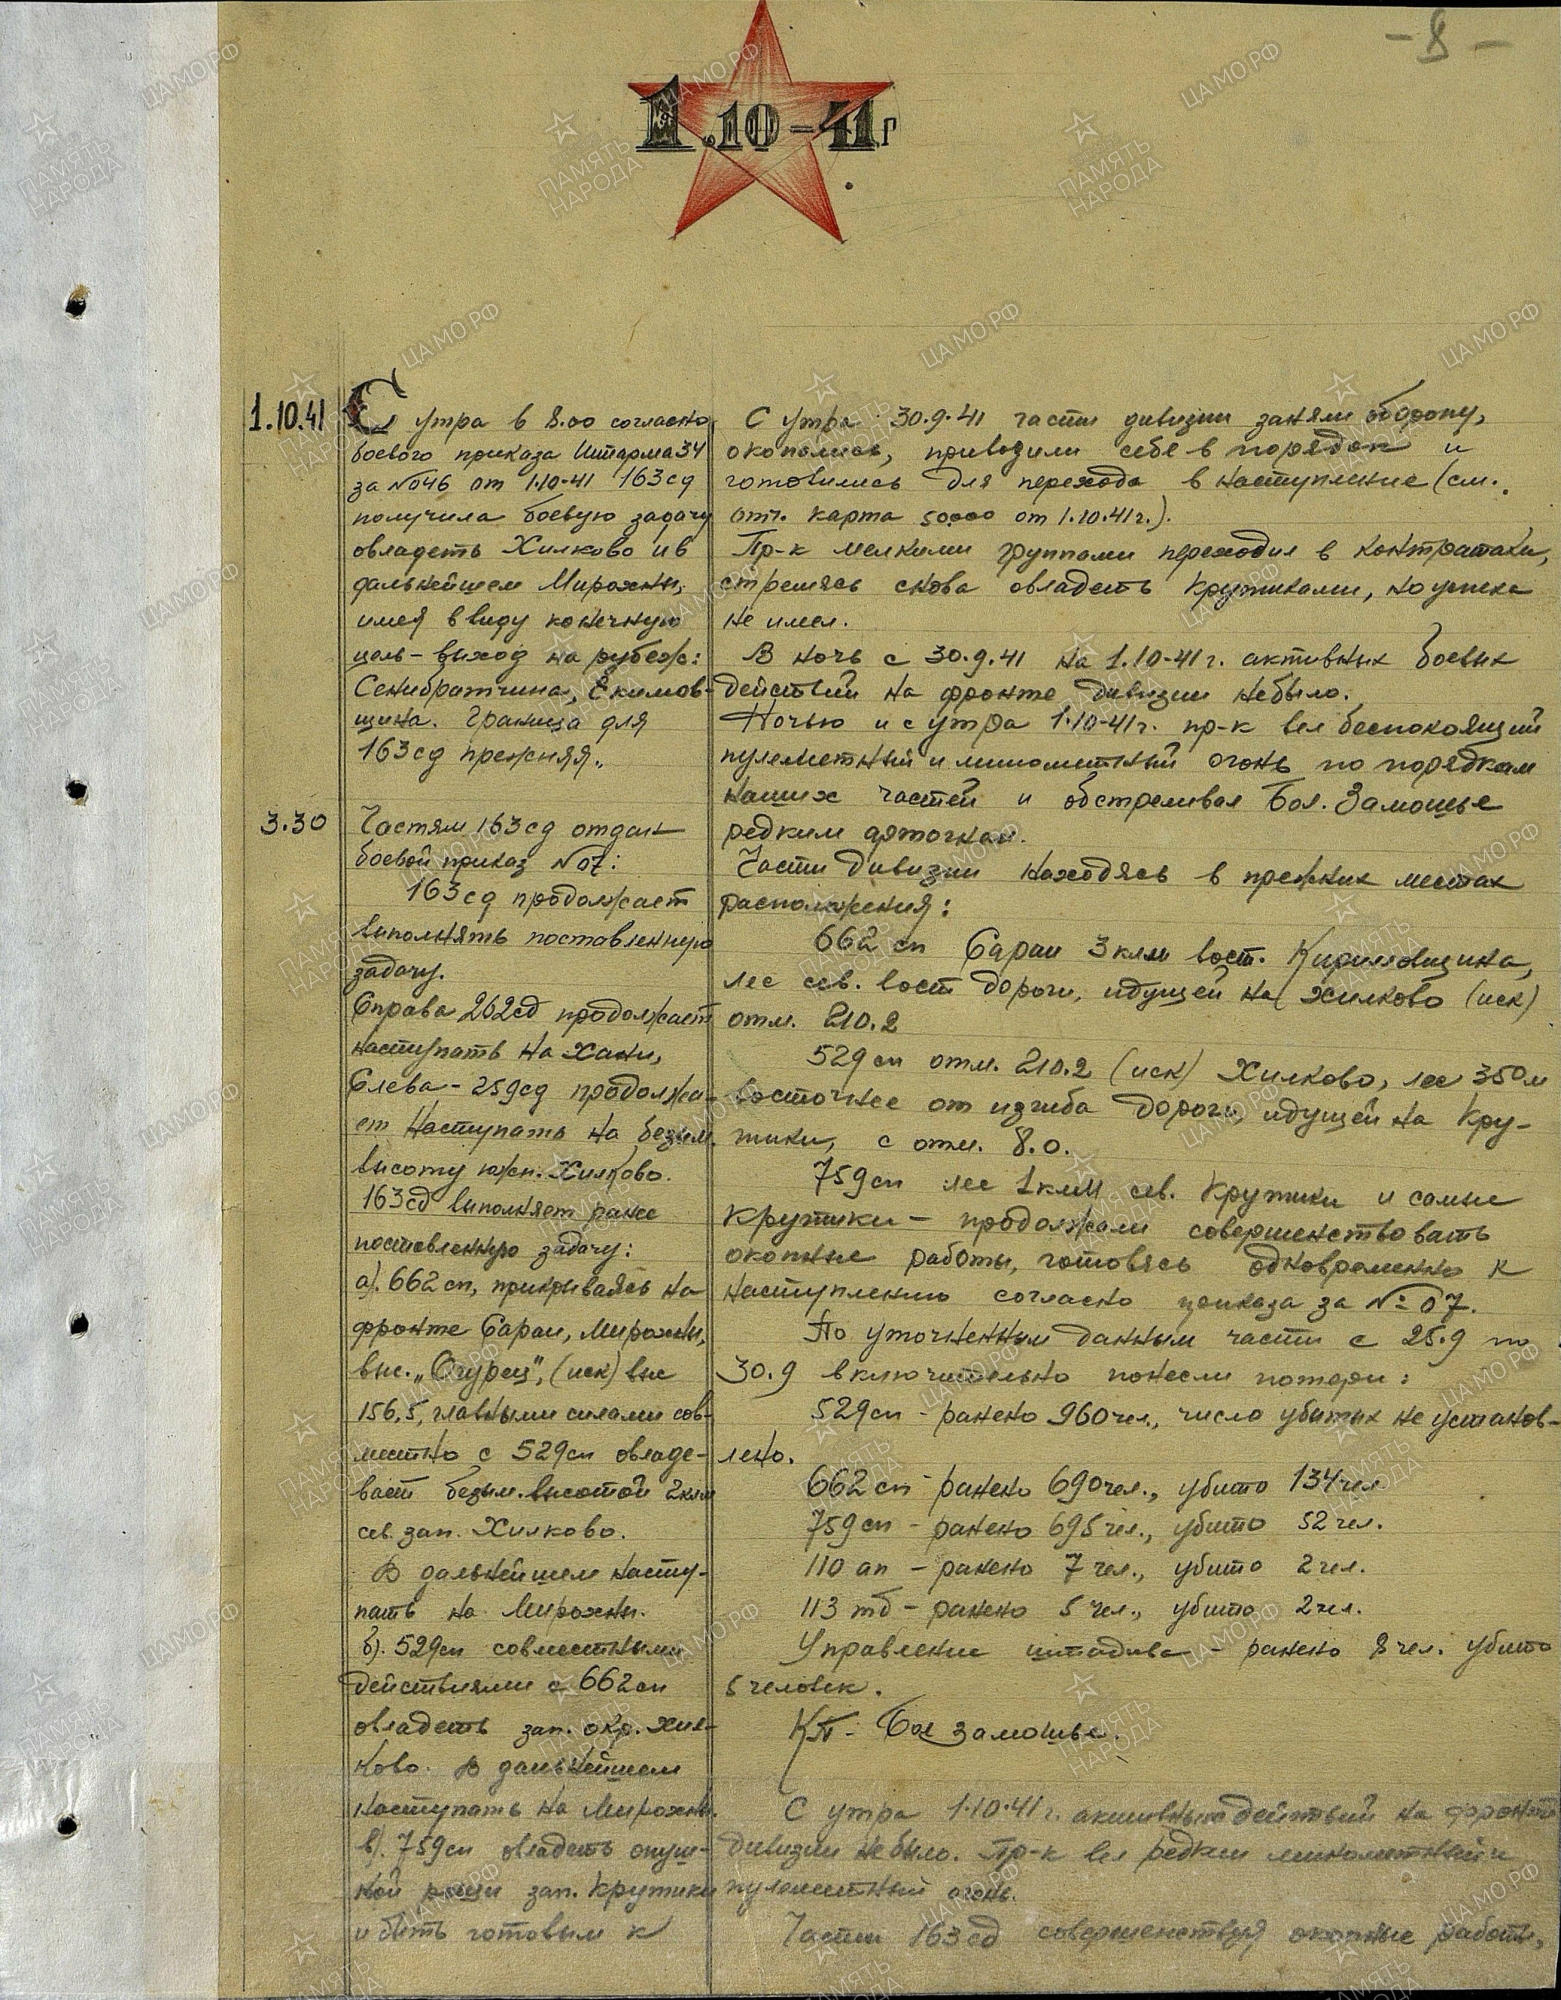 - 8 -
1.10-41г
1.10.41
С утра в 8.00 согласно
боевого приказа Штарма 34
за №046 от 1.10-41 163сд
получила боевую задачу
овладеть Хилково и в
дальнейшем Мирохны,
имея ввиду конечную
цель - выход на рубеж:
Сенибратчина, Екимов-
щина. Граница для
163сд прежняя.
3.30
Частям 163сд отдан
боевой приказ №07:
163сд продолжает
выполнять поставленную
задачу.
Справа 262сд продолжает
наступать на Хани,
Слева - 259сд продолжа-
ет наступать на безым.
высоту южн. Хилково.
163сд выполняет ранее
поставленную задачу:
а). 662 сп, прикрываясь на
фронте Сараи, Мирохны,
выс. „Огурец", (иск) выс
156,5, главными силами сов-
местно с 529сп овладе-
вает безым. высотой 2клм
сев. зап. Хилково.
В дальнейшем насту-
пать на Мирохны.
б). 529сп совместными
действиями с 662сп
овладеть зап. окр. Хил-
ково. В дальнейшем
наступать на Мирохны.
в). 759сп овладеть опуш-
кой рощи зап. Крутики
и быть готовым к
С утра 30.9.41 части дивизии заняли оборону,
окопались, приводили себя в порядок и
готовились для перехода в наступление (см.
отч. карта 50000 от 1.10.41г.).
Пр-к мелкими группами переходил в контратаки,
стремясь снова овладеть Крутиками, но успеха
не имел.
В ночь с 30.9.41 на 1.10-41г. активных боевых
действий на фронте дивизии небыло.
Ночью и с утра 1.10-41г. пр-к вел беспокоящий
пулеметный и минометный огонь по порядкам
наших частей и обстреливал Бол. Замошье
редким артогнем.
Части дивизии находясь в прежних местах
расположения:
662 сп Сараи 3клм вост. Кирилловщина,
лес сев. вост дороги, идущей на Хилково (иск)
отм. 210.2
529сп отм. 210.2 (иск) Хилково, лес 350м
восточнее от изгиба дороги, идущей на Кру-
тики, с отм. 8.0.
759сп лес 1клм сев. Крутики и самые
Крутики - продолжали совершенствовать
окопные работы, готовясь одновременно к
наступлению согласно приказа за №07.
По уточненным данным части с 25.9 по
30.9 включительно понесли потери:
529сп - ранено 960чел., число убитых не установ-
лено.
662сп - ранено 690чел., убито 134чел
759сп - ранено 695чел., убито 52 чел.
110 ап - ранено 7 чел., убито 2 чел.
113 тб - ранено 5 чел., убито 2 чел.
Управление штадива - ранено 8 чел. убито
5 человек.
КП - Бол Замошье.
С утра 1.10.41г. активных действий на фронте
дивизии не было. Пр-к вел редкий минометный и
пулеметный огонь.
Части 163сд совершенствуя окопные работы,